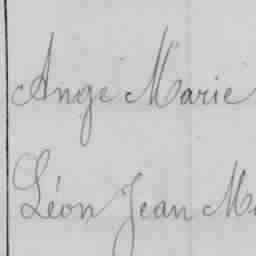 Ange Marie
Léon Jean M